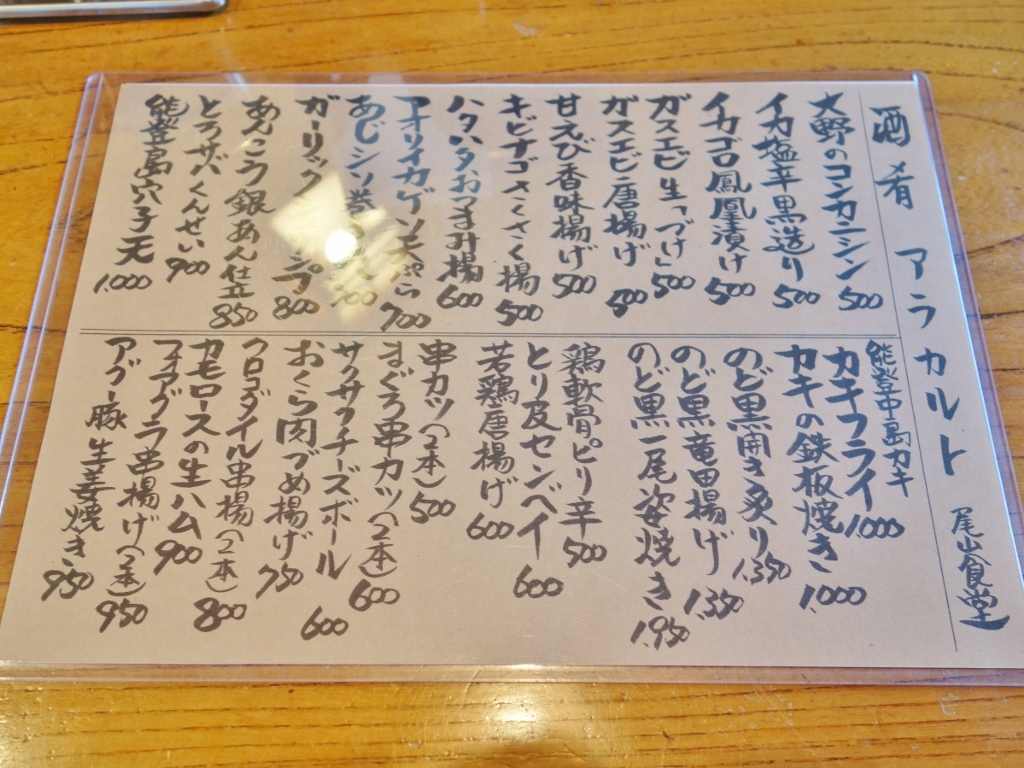 酒肴 アラカルト 尾山食堂
大野のコンカニシン 500
イカ塩辛黒造り 500
イカゴロ鳳凰漬け 500
ガスエビ生「づけ」 500
ガスエビ唐揚げ 500
甘えび香味揚げ 500
キビナゴさくさく揚 500
ハタハタおつまみ揚 600
アオリイカゲソ天ぷら 700
あじシソ巻
ガーリック 800
あんこう銀あん仕立 850
とろサバくんせい 900
能登島穴子天 1,000
能登中島カキ
カキフライ 1,000
カキの鉄板焼き 1,000
のど黒開き炙り 1,350
のど黒竜田揚げ 1,350
のど黒一尾姿焼き 1,950
鶏軟骨ピリ辛 500
とり皮センベイ 600
若鶏唐揚げ 600
串カツ(2本) 500
まぐろ串カツ(2本) 600
サクサクチーズボール 600
おくら肉づめ揚げ 750
クロコダイル串揚(2本) 800
カモロースの生ハム 900
フォアグラ串揚げ(2本) 950
アグー豚生姜焼き 950